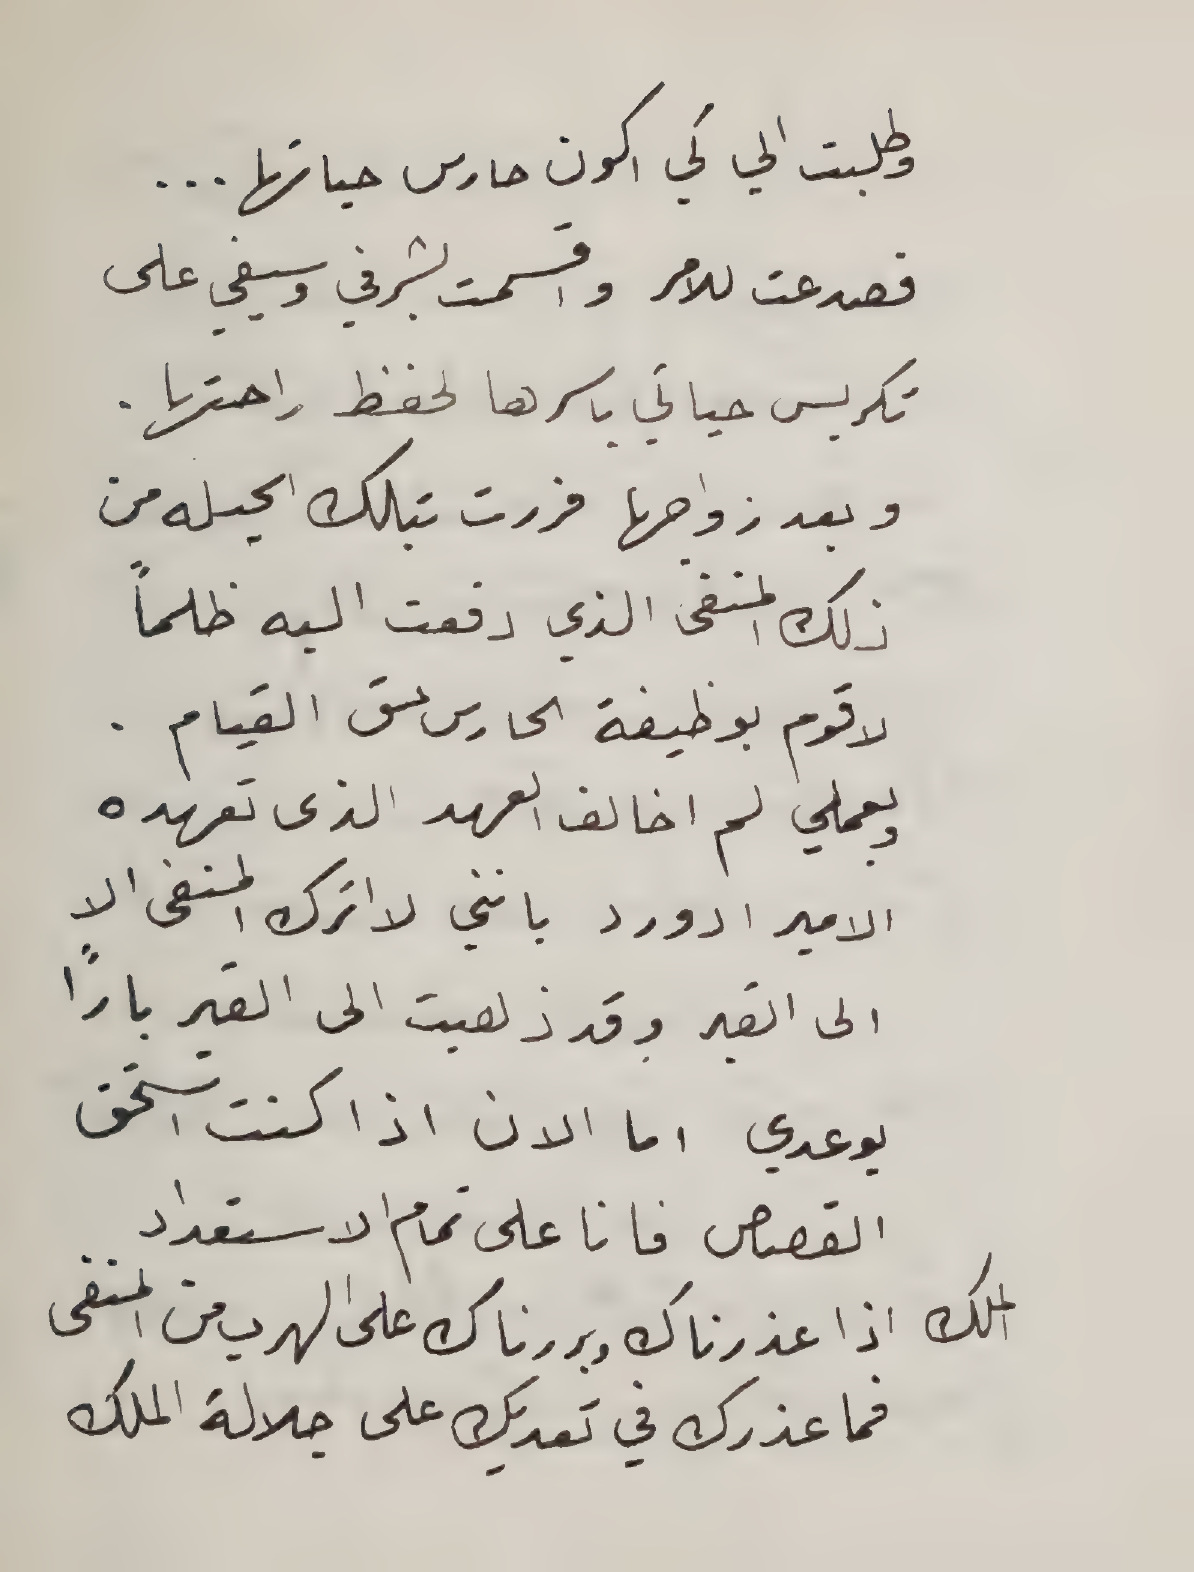 وطلبت الي كي اكون حارس حياتها ...
فصدعت للامر واقسمت بشرفي وسيفي على
تكريس حياتي باسرها لحفظ راحتها .
وبعد زواجها فررت بتلك الحيله من
ذلك المنفى الذي دفعت اليه ظلماً
لاقوم بوظيفة الحارس حق القيام .
وبعملي لم اخالف العهد الذى تعهده
الامير ادورد بانني لا اترك المنفى الا
الى القبر وقد ذهبت الى القبر بارًا
بوعدي اما الان اذا كنت استحق
القصاص فانا على تمام الاستعداد
الملك اذا عذرناك وبررناك على الهرب من المنفى
فما عذرك في تعديك على جلالة الملك